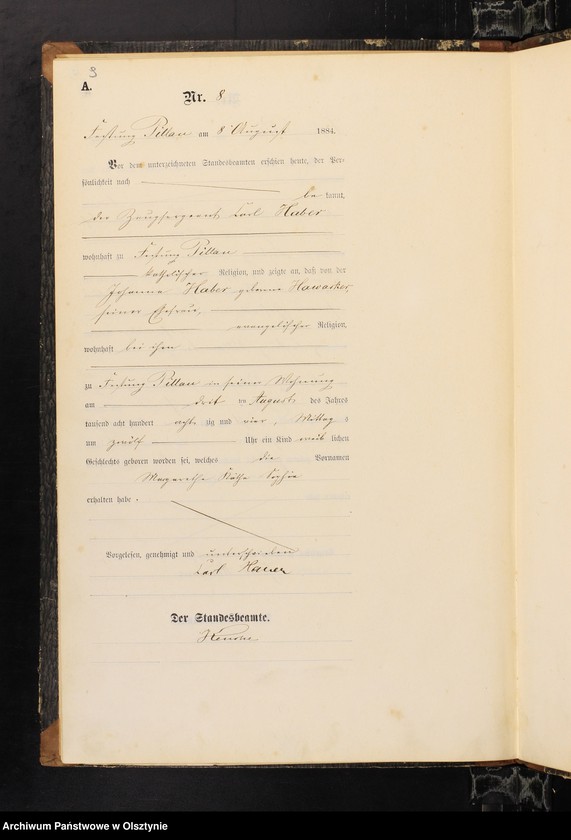 3
A.
Nr. 8.
Festung Pillau am 8 August 1884.
Vor dem unterzeichneten Standesbeamten erschien heute, der Per-
sönlichkeit nach
be kannt,
der Zeugsergeant Carl Huber
wohnhaft zu Festung Pillau
katholischer Religion, und zeigte an, daß von der
Johanna Huber geborene
seiner Ehefrau,
evangelischer Religion,
wohnhaft bei ihm
zu Festung Pillau in seiner Wohnung
am drit ten August des Jahres
tausend acht hundert acht zig und vier, Mittag s
um zwölf Uhr ein Kind weib lichen
Geschlechts geboren worden sei, welches die Vornamen
Margarethe Käthe Sophie
erhalten habe.
Vorgelesen, genehmigt und unterschrieben
Carl
Der Standesbeamte.
Archiwum Państwowe w Olsztynie